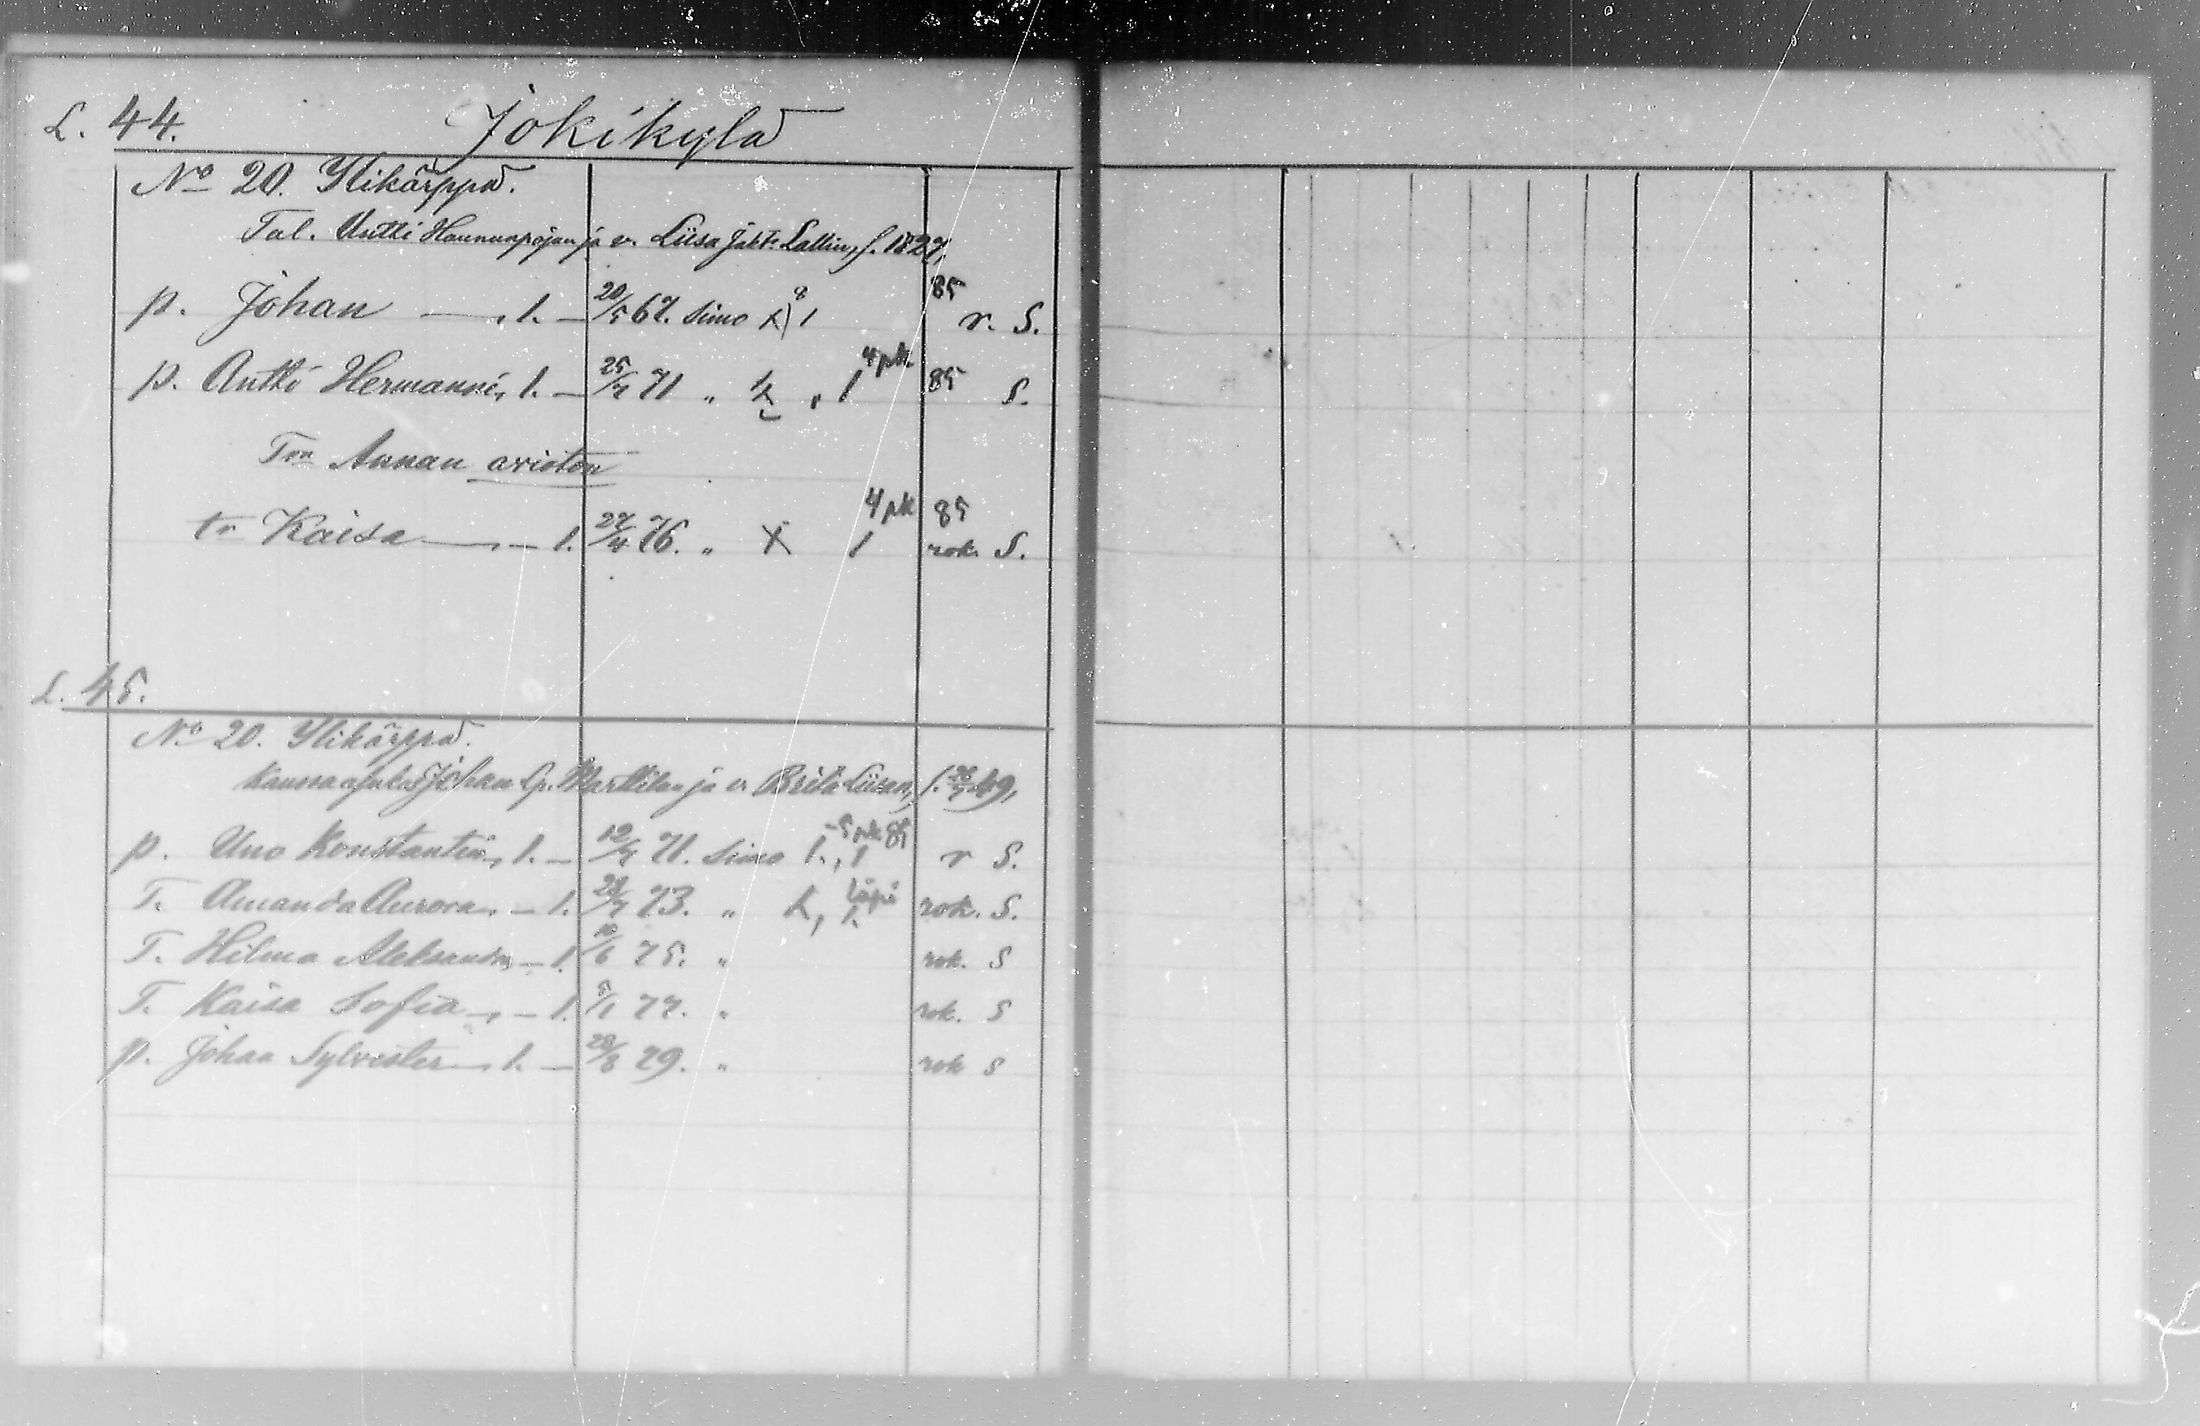 L. 44. Jokikylä
No 20. Ylikärppä.
Tal. Antti Hannunpojan ja v. Liisa Jaht. Lallin, s. 1827,
p. Johan — „ l. — 20/5 67. Simo x) 8 1 85 r. S.
p. Antti Hermanni, l. — 25/7 71 „ x , 1 4 pk. 85 S.
Trn Annan avioton
tr Kaisa — l. 27/4 76. „ X 1 4 pk 85 rok. S.
L. 45.
No 20. Ylikärppä.
Johan Martttilan ja v. Brita Liisan, s. 49,
p. Uno Konstantin, l. — 12/7 71. Simo 1., 1 5 pk 85 r S.
T. Amanda Aurora, — l. 28/7 73. „ 1. läpi rok. S.
T. Hilma Aleksandra, — l. 10/6 75. „ rok. S
T. Kaisa Sofia, — l. 5/1 77. „ rok. S
p. Johan Sylvester — l. — 28/8 79. „ rok S